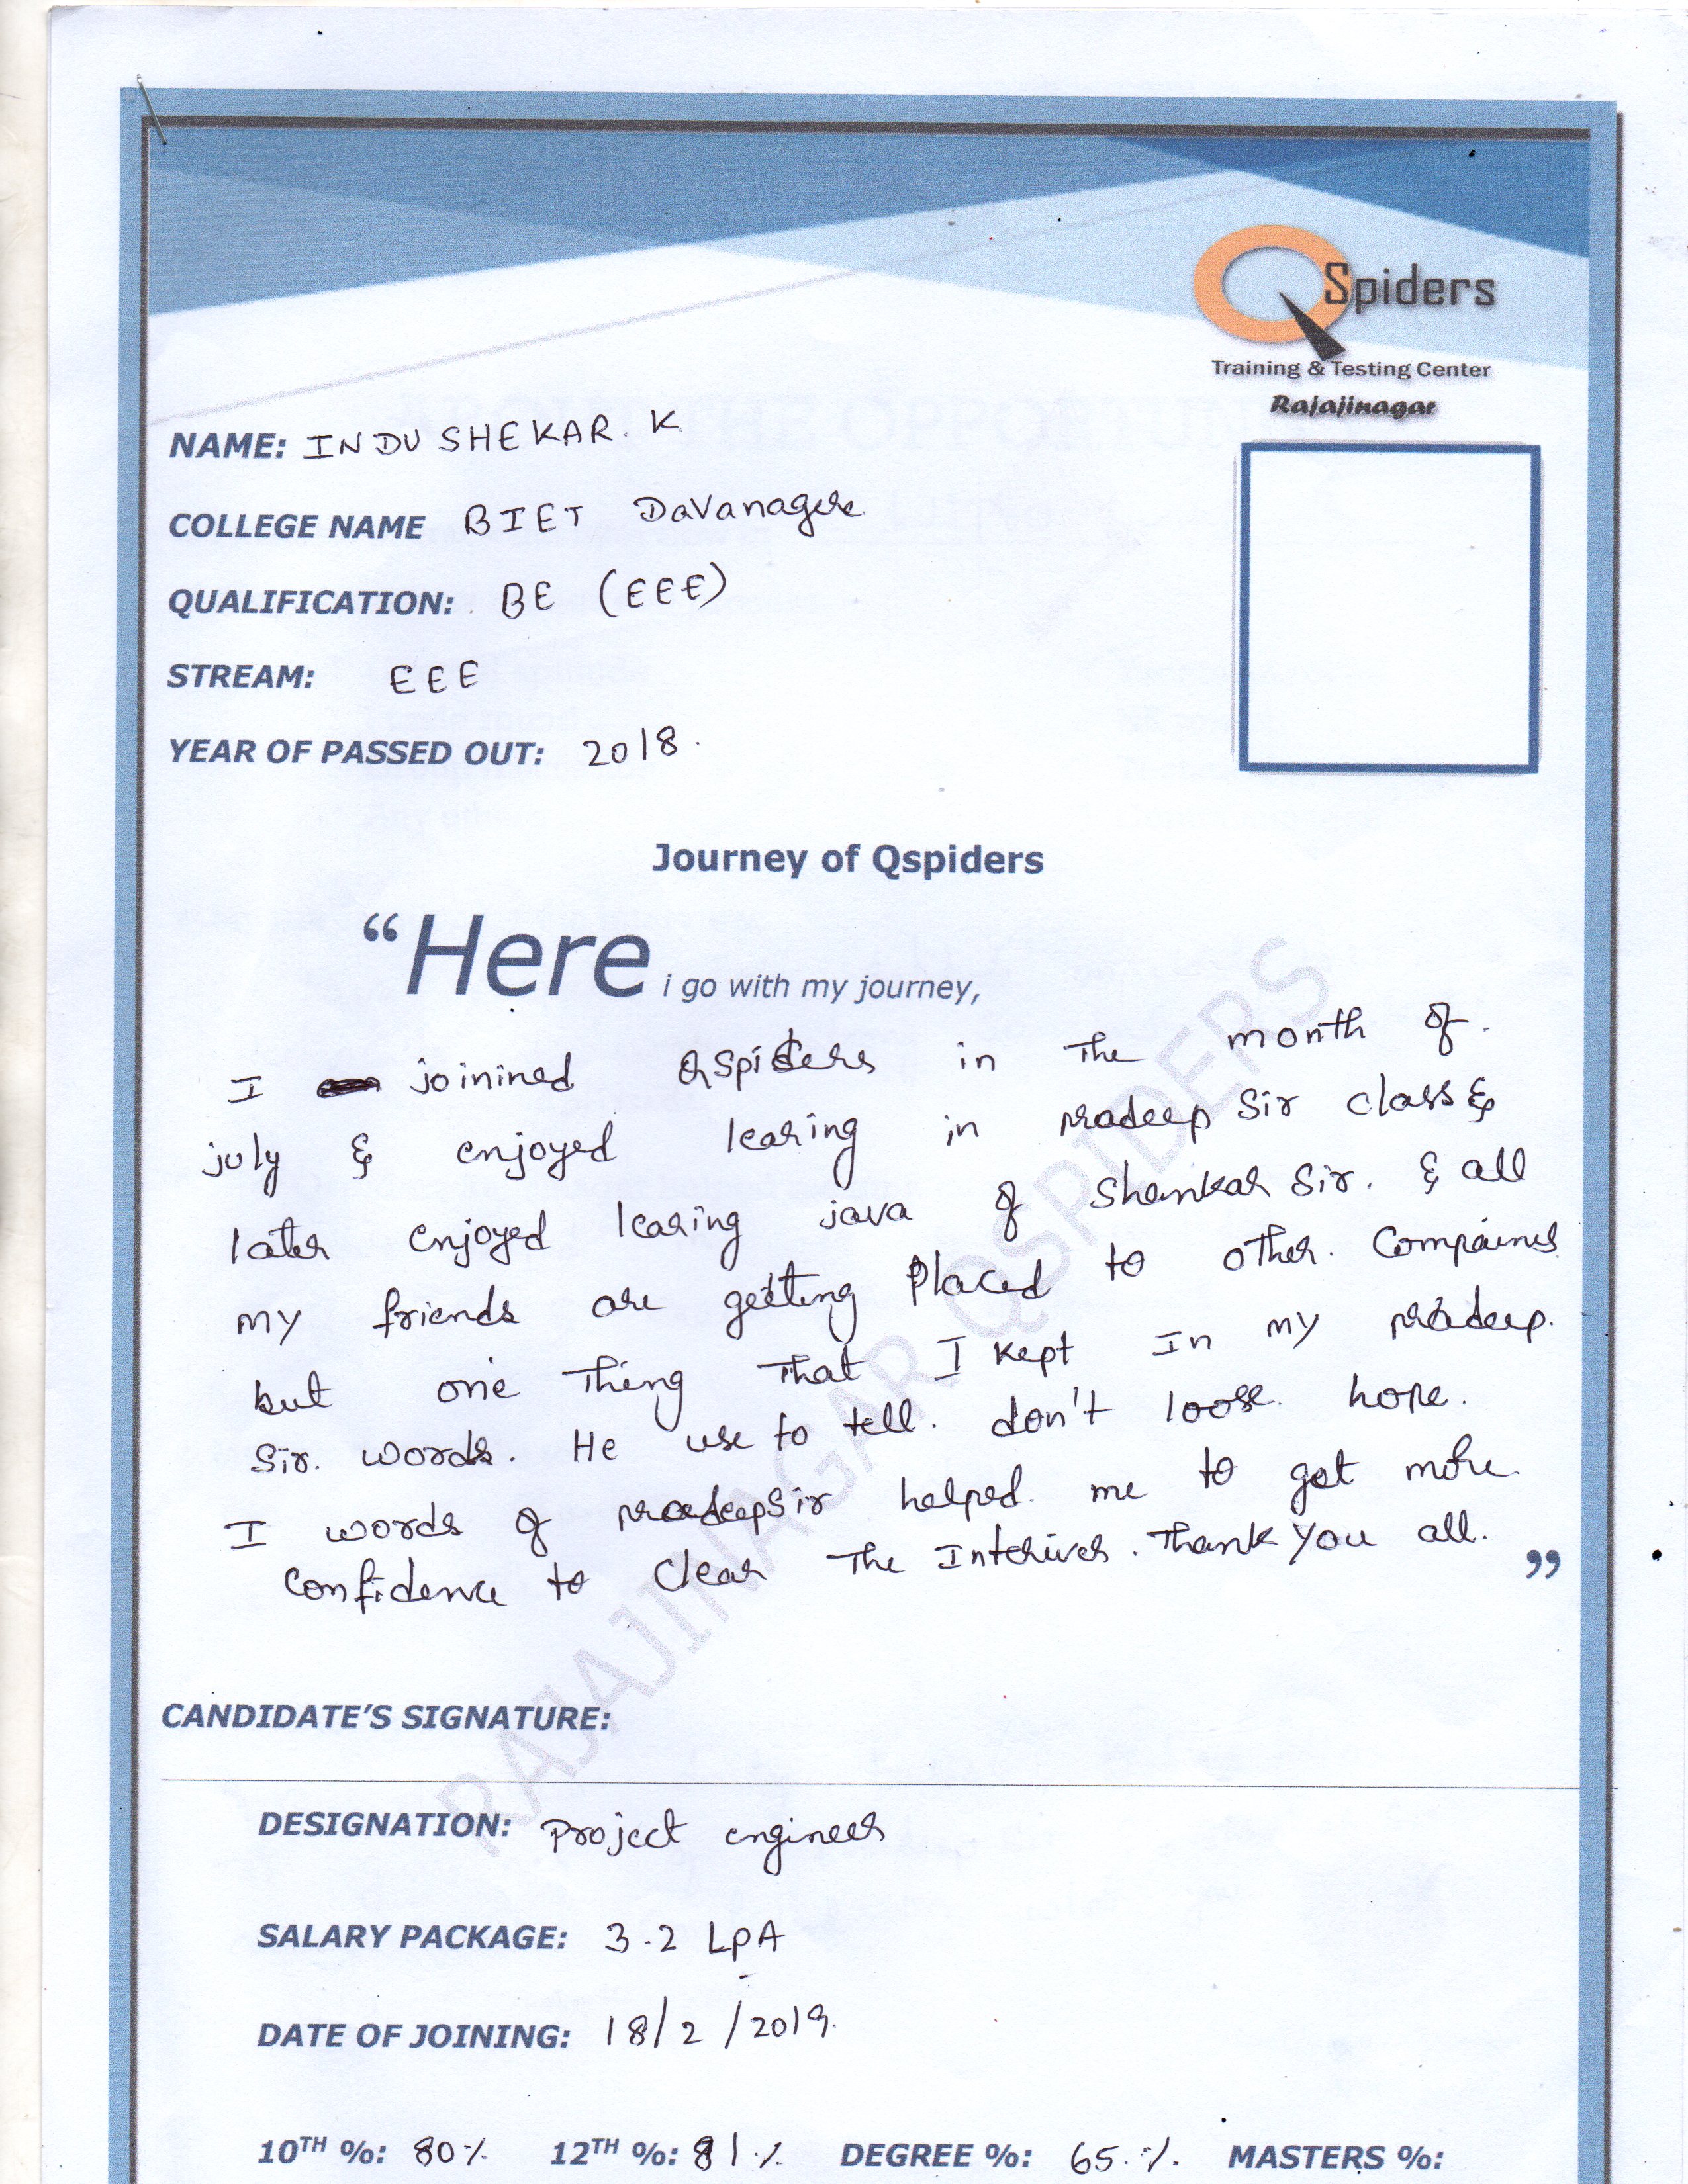 QSpiders
Training & Testing Center
Rajajinagar
NAME: INDUSHEKAR. K
COLLEGE NAME BIET Davanagere
QUALIFICATION: BE (EEE)
STREAM: EEE
YEAR OF PASSED OUT: 2018.
Journey of Qspiders
“Here i go with my journey,
I joinined QSpiders in the month of.
july & enjoyed learing in pradeep Sir class &
later enjoyed learing java of Shankar Sir. & all
my friends are getting placed to other. Compaines
but one thing that I kept In my pradeep.
Sir. words. He use to tell. don't loose. hope.
I words of pradeep Sir helped. me to get more.
Confidence to clear the Interives. Thank you all. ”
CANDIDATE’S SIGNATURE:
DESIGNATION: Project engineer
SALARY PACKAGE: 3.2 LPA
DATE OF JOINING: 18/2/2019.
10TH %: 80% 12TH %: 81% DEGREE %: 65.% MASTERS %:
RAJAJINAGAR QSPIDERS